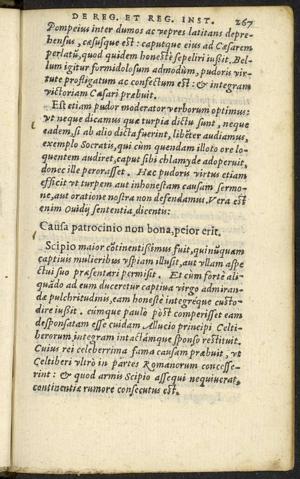 DE REG. ET REG. INST. 267
Pompeius inter dumos ac vepres latitans depre-
hensus, cæsusque est: caputque eius ad Cæsarem
perlatũ, quod quidem honestè sepeliri iußit. Bel-
lum igitur formidolosum admodùm, pudoris vir-
tute profligatum ac confectum est: & integram
victoriam Cæsari præbuit.
Est etiam pudor moderator verborum optimus:
vt neque dicamus quæ turpia dictu sunt, neque
eadem, si ab alio dicta fuerint, libẽter audiamus,
exemplo Socratis, qui cùm quendam illoto ore lo-
quentem audiret, caput sibi chlamyde adoperuit,
donec ille perorasset. Hæc pudoris virtus etiam
efficit vt turpem aut inhonestam causam sermo-
ne, aut oratione nostra non defendamus. Vera est
enim Ouidij sententia dicentis:
Causa patrocinio non bona, peior erit.
Scipio maior cõtinentißimus fuit, qui nũquam
captiuis mulieribus vspiam illusit, aut vllam aspe
ctui suo præsentari permisit. Et cùm fortè ali-
quãdo ad eum duceretur captiua virgo admiran-
dæ pulchritudinis, eam honestè integréque custo-
dire iußit. cúmque paulò pòst comperisset eam
desponsatam esse cuidam Allucio principi Celti-
berorum integram intactámque sponso restituit.
Cuius rei celeberrima fama causam præbuit, vt
Celtiberi vltrò in partes Romanorum concesse-
rint: & quod armis Scipio assequi nequiuerat,
continentiæ rumore consecutus est.